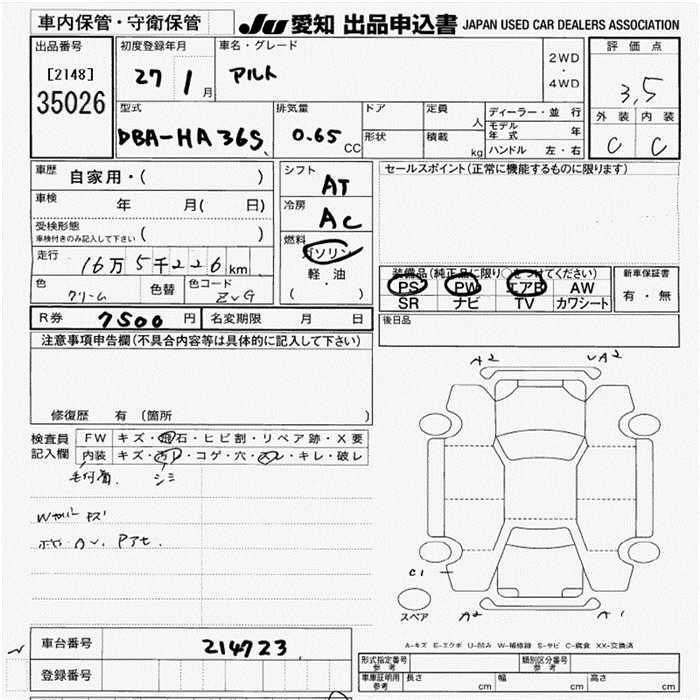 車内保管・守衛保管 JU 愛知 出品申込書 JAPAN USED CAR DEALERS ASSOCIATION
出品番号 初度登録年月 車名・グレード 評価点
[2148] 27 1 月 アルト 2WD ・ 4WD 3,5
35026
型式 排気量 ドア 定員 人 ディーラー・並行 外装 内装
DBA-HA36S 0.65 CC 形状 積載 kg モデル年式 年 C C
ハンドル 左・右
車歴 自家用・( ) シフト AT セールスポイント(正常に機能するものに限ります)
車検 年 月( 日) 冷房 AC
受検形態 ( )
車検付きのみ記入して下さい
燃料 ガソリン
走行 16万5千226km 軽油 装備品(純正品に限り○をつけてください) 新車保証書
色 クリーム 色替 色コード ZVG ( ) PS PW エアB AW 有・無
SR ナビ TV カワシート
R券 7500 円 名変期限 月 日 後日品
注意事項申告欄(不具合内容等は具体的に記入して下さい)
A2 A2
修復歴 有(箇所 )
検査員 FW キズ・飛石・ヒビ割・リペア跡・X要
記入欄 内装 キズ・汚レ・コゲ・穴・スレ・キレ・破レ
シミ
C1
スペア A2 A1
A-キズ E-エクボ U-凹み W-補修跡 S-サビ C-腐食 XX-交換済
車台番号 214723 形式指定番号 参考 類別区分番号 参考
登録番号 車庫証明用 参考 長さ cm 幅 cm 高さ cm